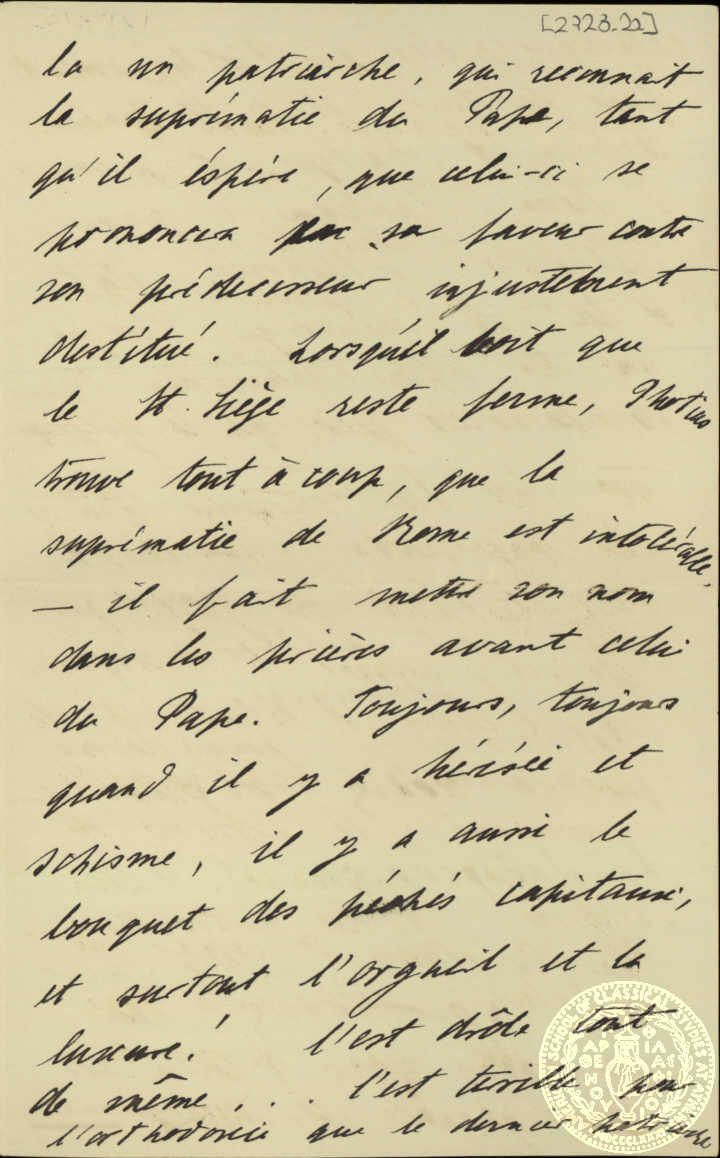 [2728.22]
la un patriarche, qui reconnait
la suprématie du Pape, tant
qu'il éspére, que celui-ci se
prononcera par sa faveur contre
son prédecesseur injustement
destitué. Lorsqu'il voit que
le St. Siège reste ferme, Photius
trouve tout à coup, que la
suprématie de Rome est intolérable,
— il fait mettre son nom
dans les prières avant celui
du Pape. Toujours, toujours
quand il y a hérésie et
schisme, il y a aussi le
bouquet des péchés capitaux,
et surtout l'orgueil et la
luxure! C'est drôle tout
de même... C'est terrible pour
l'orthodoxie que le dernier patriarche